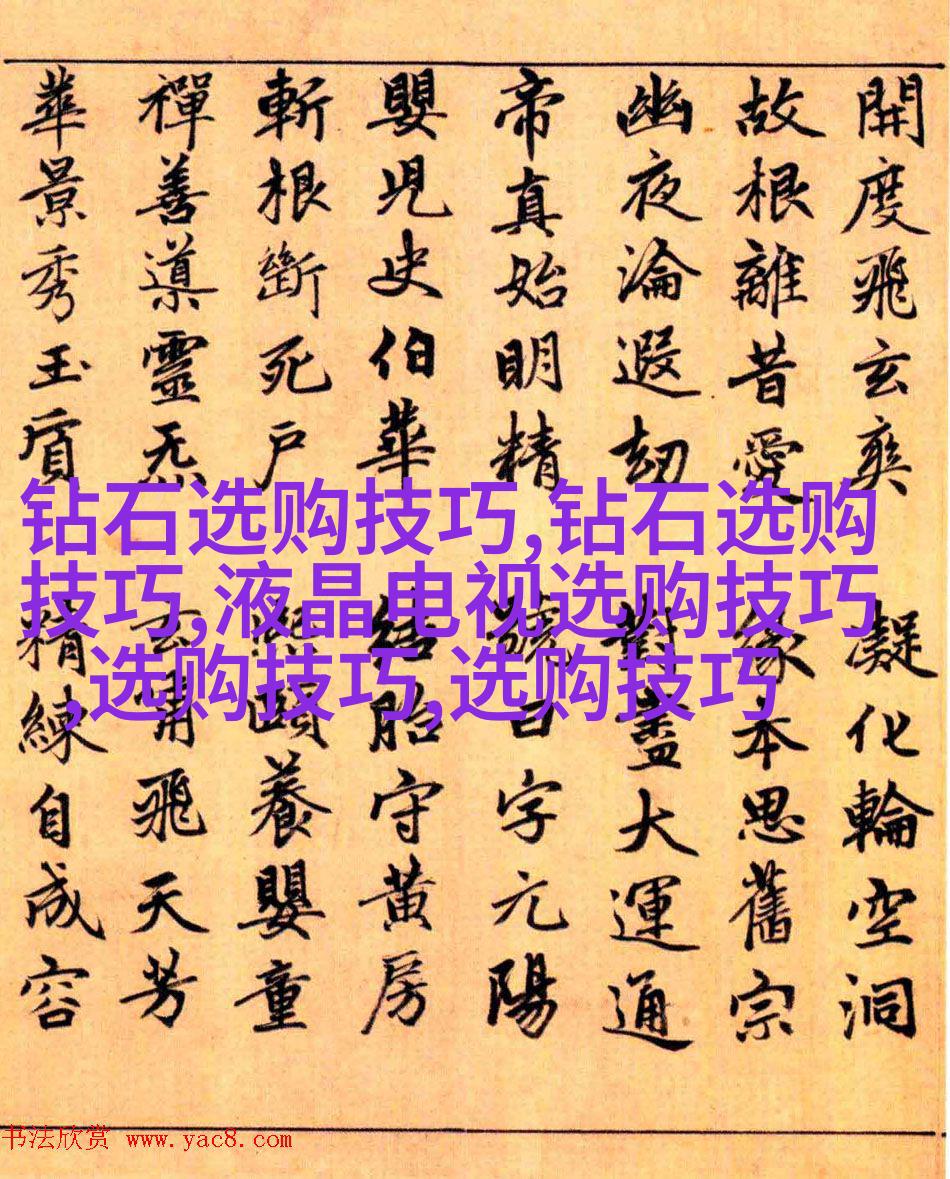 開度飛玄爽 凝化輪空洞
故根離昔愛 緣本思舊宗
幽夜淪遐劫 對盡大運通
帝真始明精 號曰字元陽
嬰兒史伯華 結胎守黃房
斬根斷死戶 頤養嬰童
禪善導靈炁 玄 飛天芳
華景秀玉賓 精練自成容
钻石选购技巧,钻石选购
技巧,液晶电视选购技巧
,选购技巧,选购技巧
书法欣赏 www.yac8.com